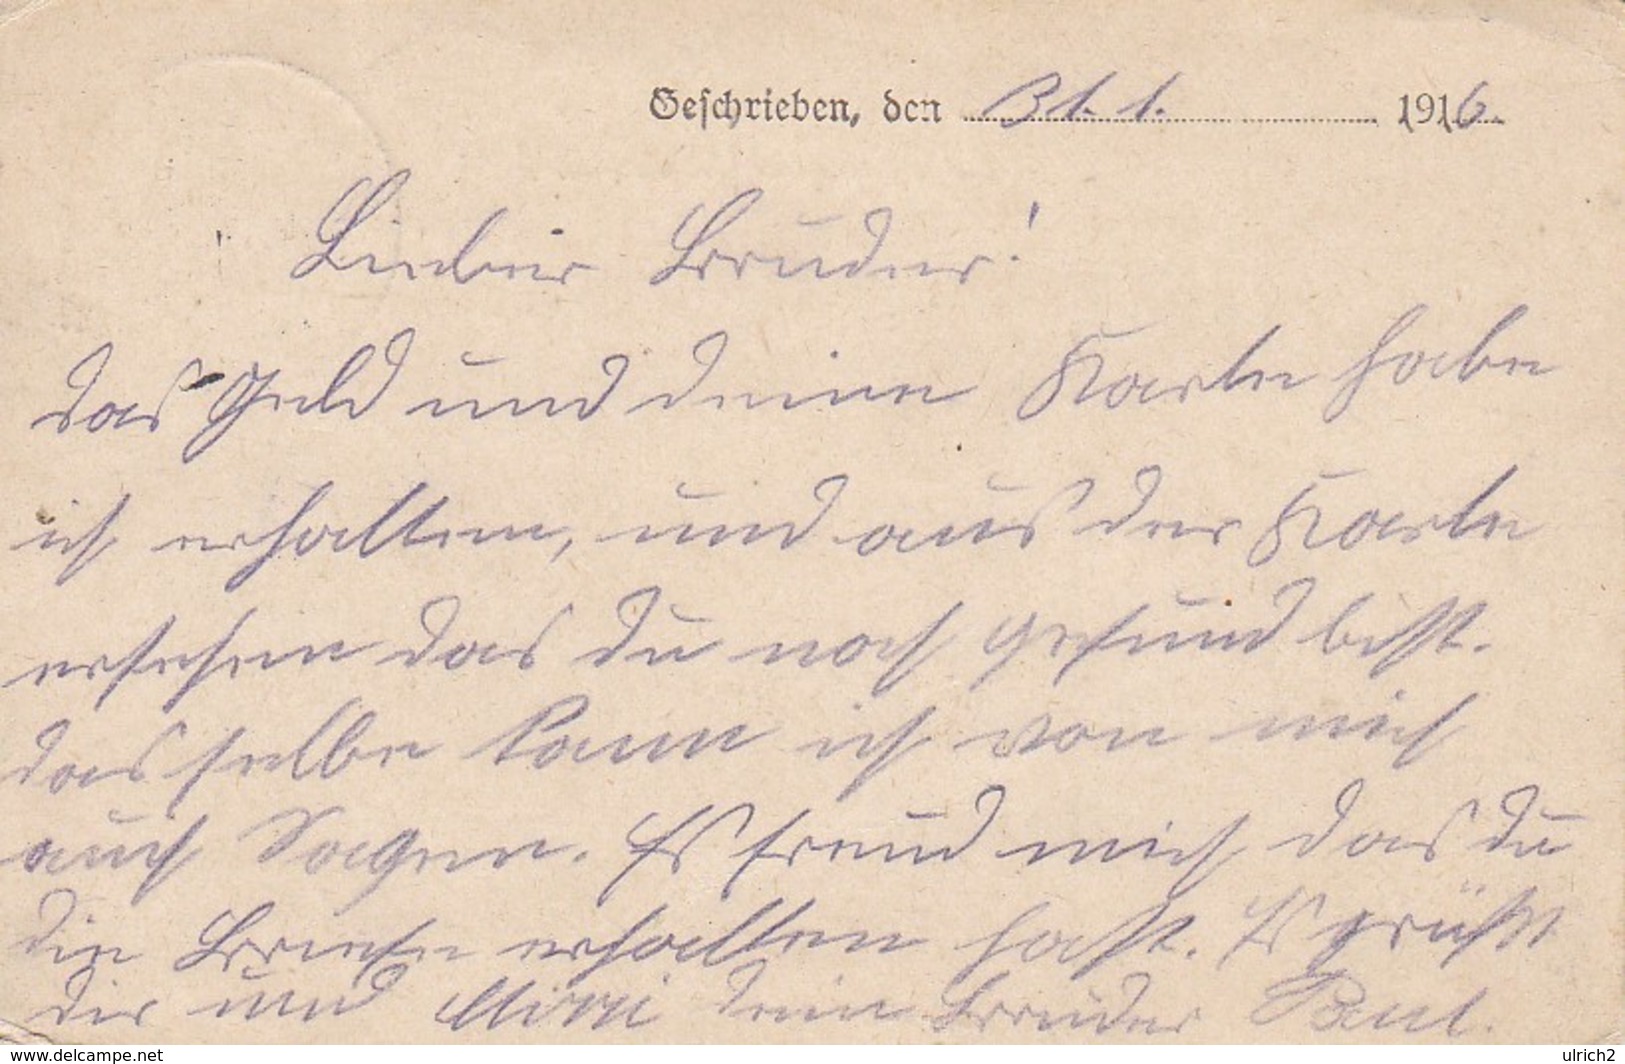 Geschrieben, den 31. 1. 1916.
Lieber Bruder!
das Geld und deine Karte habe
ich erhalten, und aus der Karte
ersehen das du noch gesund bist.
das selbe kann ich von mich
auch Sagen. Es freud mich das du
die Briefe erhalten hast. Es grüßt
dir und Mirri dein Bruder Paul.
www.delcampe.net
ulrich2